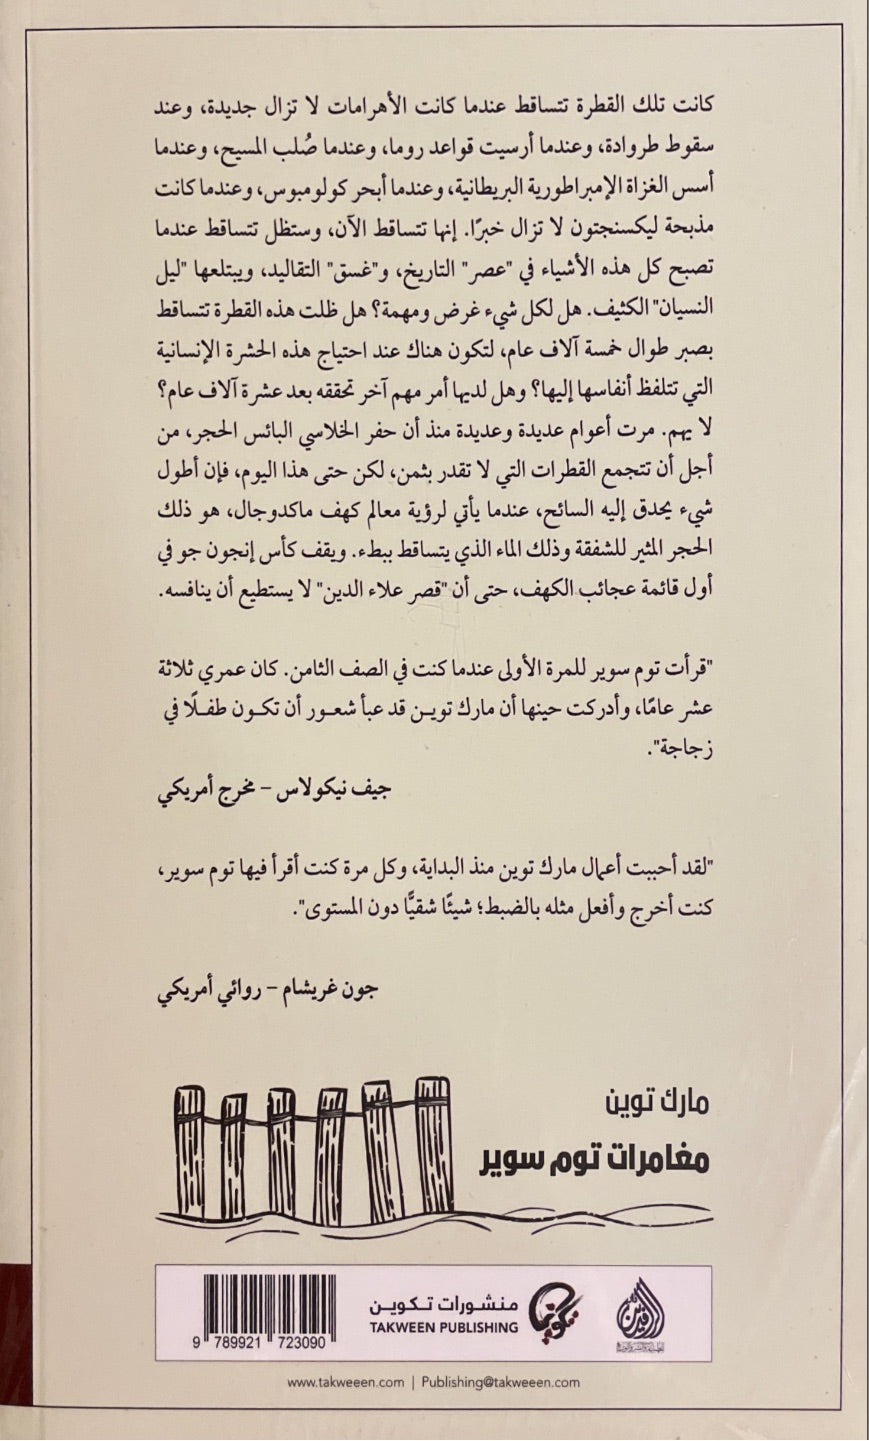 كانت تلك القطرة تتساقط عندما كانت الأهرامات لا تزال جديدة، وعند
سقوط طروادة، وعندما أرسيت قواعد روما، وعندما صُلب المسيح، وعندما
أسس الغزاة الإمبراطورية البريطانية، وعندما أبحر كولومبوس، وعندما كانت
مذبحة ليكسنجتون لا تزال خبرًا. إنها تتساقط الآن، وستظل تتساقط عندما
تصبح كل هذه الأشياء في "عصر" التاريخ، و"غسق" التقاليد، ويبتلعها "ليل
النسيان" الكثيف. هل لكل شيء غرض ومهمة؟ هل ظلت هذه القطرة تتساقط
بصبر طوال خمسة آلاف عام، لتكون هناك عند احتياج هذه الحشرة الإنسانية
التي تتلفظ أنفاسها إليها؟ وهل لديها أمر مهم آخر تحققه بعد عشرة آلاف عام؟
لا يهم. مرت أعوام عديدة وعديدة منذ أن حفر الخلاسي البائس الحجر، من
أجل أن تتجمع القطرات التي لا تقدر بثمن، لكن حتى هذا اليوم، فإن أطول
شيء يحدق إليه السائح، عندما يأتي لرؤية معالم كهف ماكدوجال، هو ذلك
الحجر المثير للشفقة وذلك الماء الذي يتساقط ببطء. ويقف كأس إنجون جو في
أول قائمة عجائب الكهف، حتى أن "قصر علاء الدين" لا يستطيع أن ينافسه.
"قرأت توم سوير للمرة الأولى عندما كنت في الصف الثامن. كان عمري ثلاثة
عشر عامًا، وأدركت حينها أن مارك توين قد عبأ شعور أن تكون طفلًا في
زجاجة".
جيف نيكولاس – مخرج أمريكي
"لقد أحببت أعمال مارك توين منذ البداية، وكل مرة كنت أقرأ فيها توم سوير،
كنت أخرج وأفعل مثله بالضبط؛ شيئًا شقيًّا دون المستوى".
جون غريشام – روائي أمريكي
مارك توين
مغامرات توم سوير
منشورات تكوين
TAKWEEN PUBLISHING
تكوين
الرافدين
9 789921 723090
www.takweeen.com | Publishing@takweeen.com